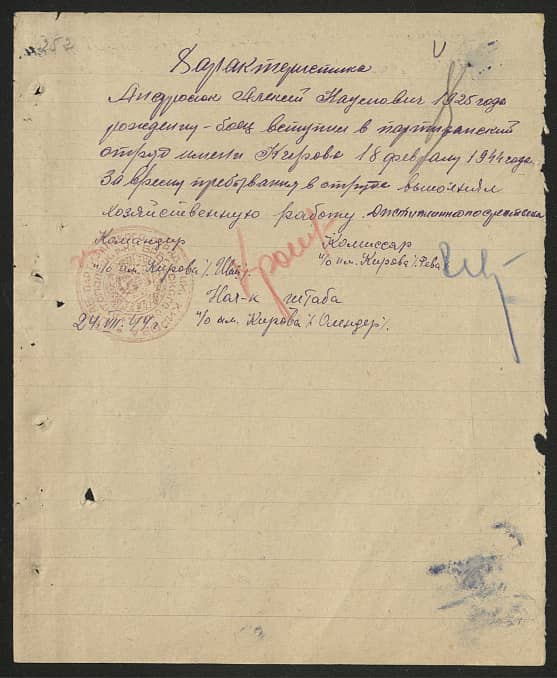 252
V
Характеристика
Андросюк Алексей Наумович 1925 года
рождению - боец вступил в партизанский
отряд имени Кирова 18 февралу 1944 года.
За время пребывания в отряде выполнял
хозяйственную работу. Дисциплина посредственна
Командир Комиссар
п/о им. Кирова /. Шай/. п/о им. Кирова /. Рева
Нач-к штаба
24.VII.44 г. п/о им. Кирова /. Олендер/.